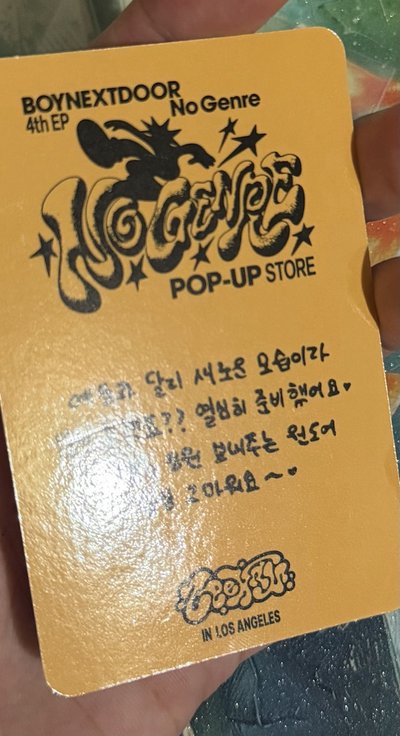 BOYNEXTDOOR
4th EP No Genre
NO GENRE
POP-UP STORE
달리 새로운 모습이라
열심히 준비했어요♥
응원 보내주는 원도어
고마워요~♥
IN LOS ANGELES